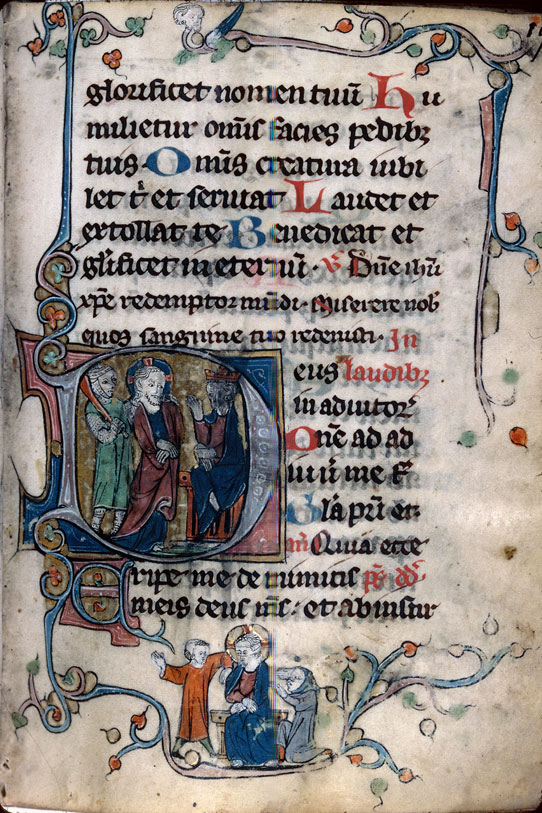 glorificet nomen tuū Hu
milietur om̄is facies pedibꝫ
tuis Om̄is creatura iubi
let t̄ et seruiat Laudet et
extollat te Benedicat et
gl̄ificet in eternū · ℣ Dn̄e ihū
xp̄e redemptor mūdi · Miserere nob
quos sanguine tuo redemisti · In
Deus laudibꝫ
in adiutor
Dn̄e ad ad
iuū me f
Gl̄a pr̄i et
an̄ Quia ecce
Eripe me de inimicis p̄s dd̄
meis deus m̄s : et ab insur